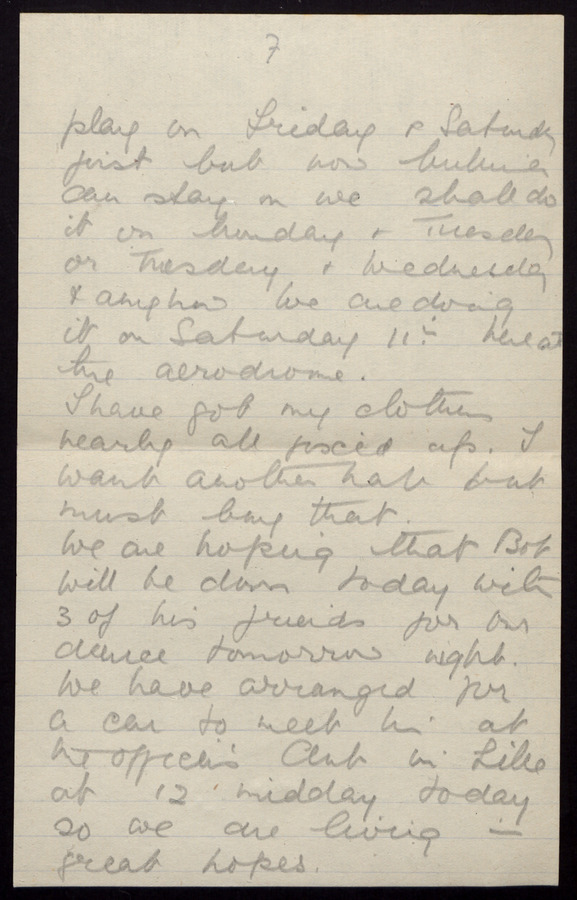 7
play on Friday & Saturday
first but now
can stay on we shall do
it on Monday & Tuesday
or Tuesday & Wednesday
& anyhow we are doing
it on Saturday 11th here at
the aerodrome.
I have got my clothes
nearly all fixed up. I
want another hat but
must buy that.
We are hoping that Bob
will be down today with
3 of his friends for our
dance tomorrow night.
We have arranged for
a car to meet him at
the officers Club in Lille
at 12 midday today
so we are living in
great hopes.